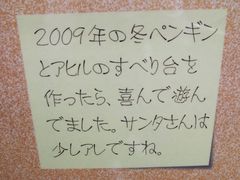 2009年の冬ペンギン
とアヒルのすべり台を
作ったら、喜んで遊ん
でました。サンタさんは
少しアレですね。